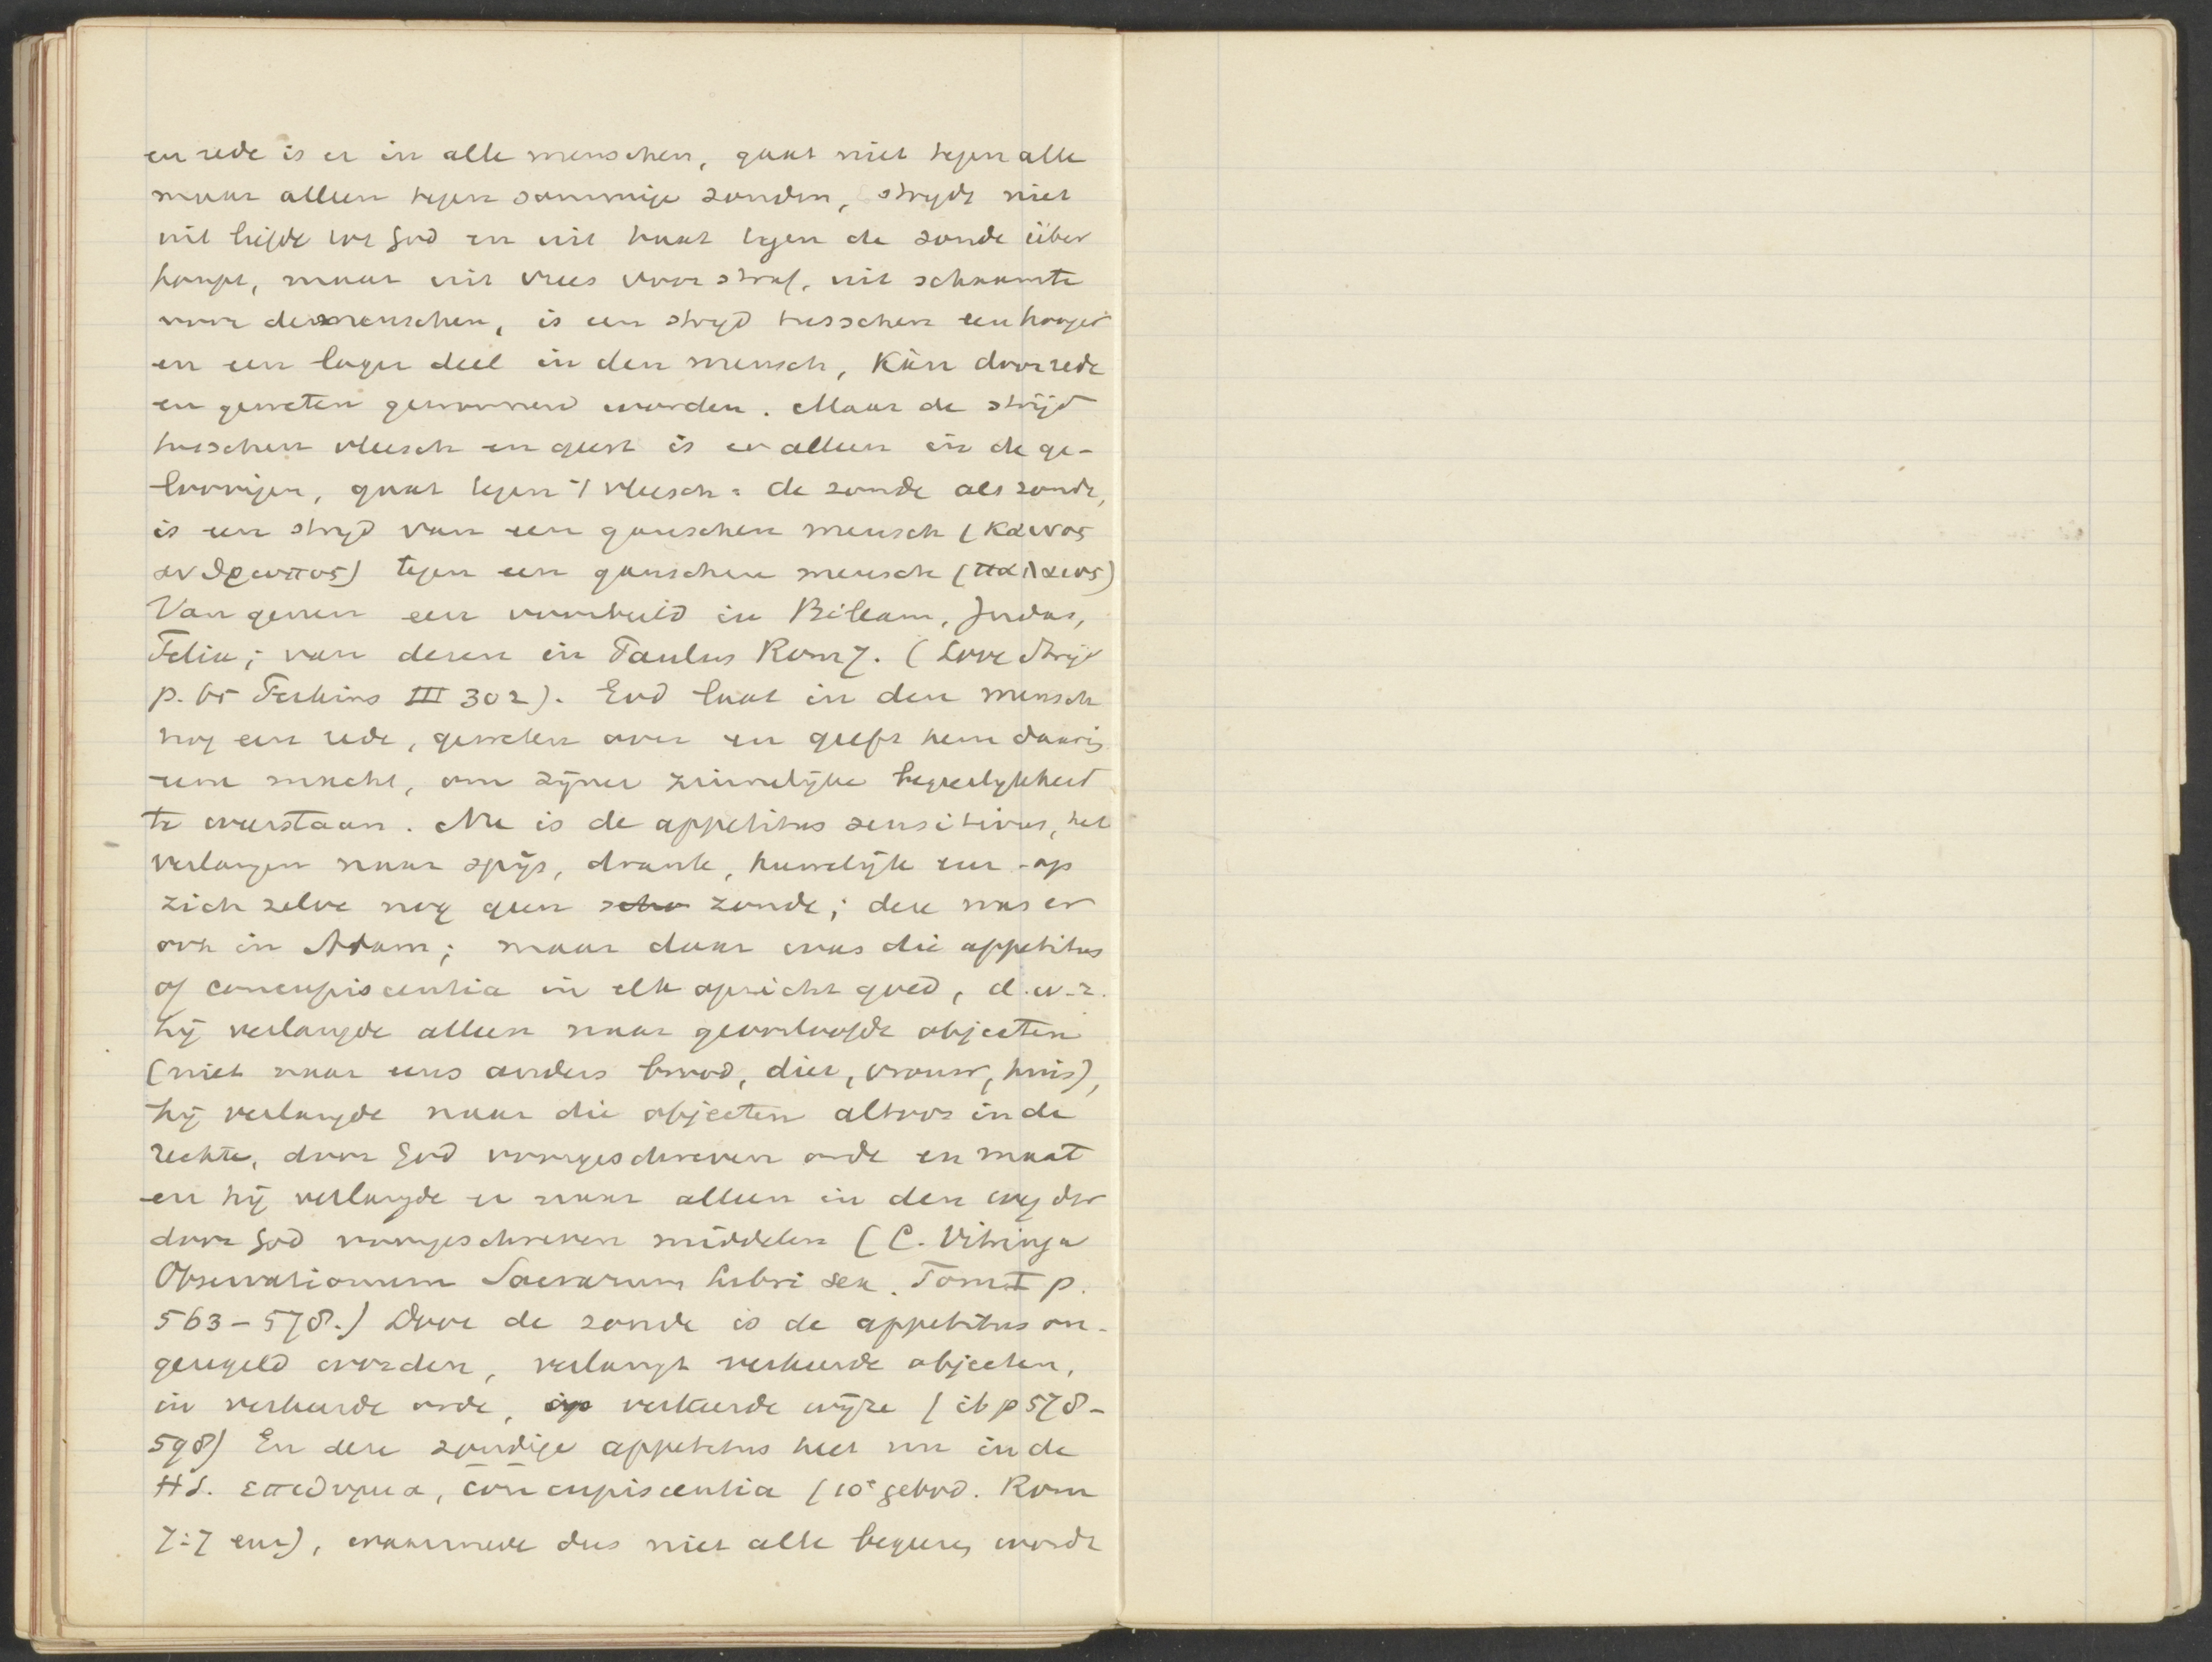 en rede is er in alle menschen, gaat niet tegen alle
maar alleen tegen sommige zonden, strydt niet
uit liefde tot God en uit haat tegen de zonde über
haupt, maar uit vrees voor straf, uit schaamte
voor de menschen, is een stryd tusschen een hooger
en een lager deel in den mensch, kàn door rede
en geweten gewonnen worden. Maar de strijd
tusschen vleesch en geest is er alleen in de ge-
loovigen, gaat tegen 't vleesch = de zonde als zonde,
is een stryd van een ganschen mensch (καινος
ανθρωπος) tegen een ganschen mensch (παλαιος)
Van genen een voorbeeld in Bileam, Judas,
Felix; van dezen in Paulus Rom 7. (Love Strijd
p. 65 Perkins III 302). God laat in den mensch
nog een rede, geweten over en geeft hem daarin
een macht, om zijner zinnelijke begeerlykheid
te weerstaan. Nu is de appetitus sensitivus, het
verlangen naar spijs, drank, huwelijk enz - op
zich zelve nog geen zonde; deze was er
ook in Adam; maar daar was die appetitus
of concupiscentia in elk opzicht goed, d.w.z.
hij verlangde alleen naar geoorloofde objecten
(niet naar eens anders brood, dier, vrouw, huis),
hij verlangde naar die objecten altoos in de
rechte, door God voorgeschreven orde en maat
en hij verlangde er naar alleen in den weg der
door God voorgeschreven middelen (C. Vitringa
Observationum Sacrarum libri sex. Tom I p.
563-578.) Door de zonde is de appetitus on-
geregeld worden, verlangt verkeerde objecten,
in verkeerde orde, op verkeerde wijze (ib p 578-
598) En deze zondige appetitus heet nu in de
HS. επιθυμια, concupiscentia (10e gebod. Rom
7:7 enz), waarmede dus niet alle begeeren wordt